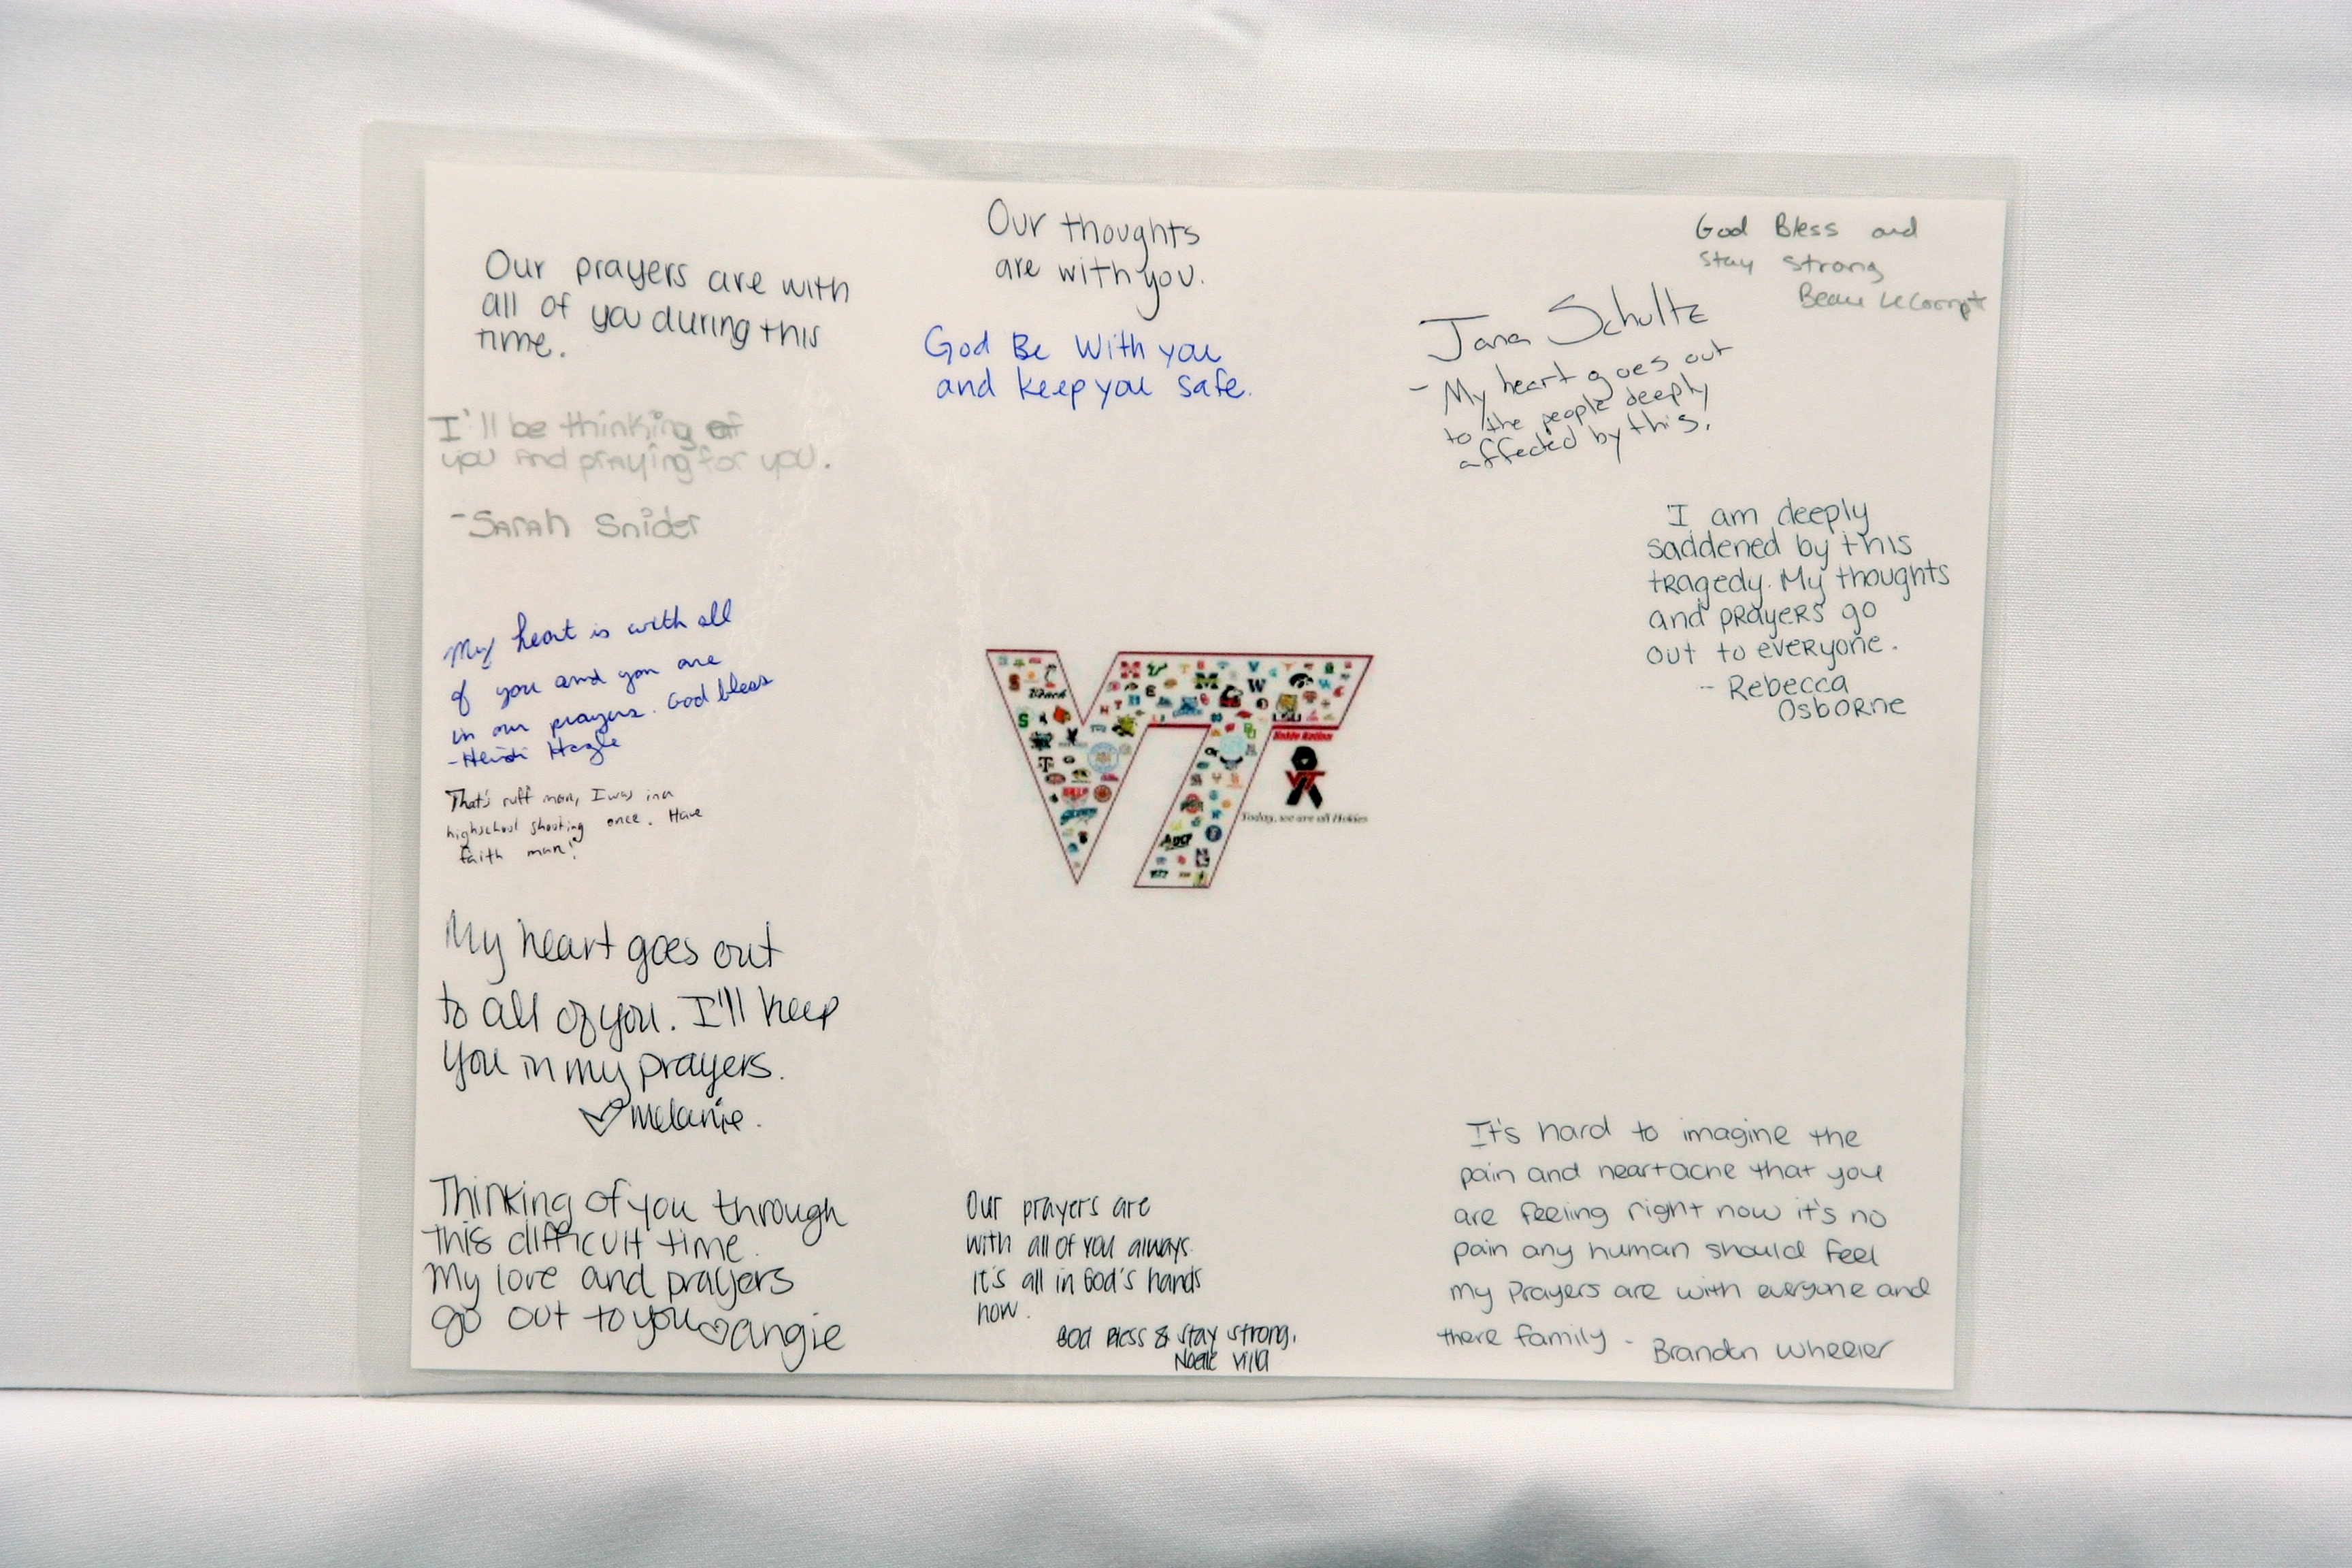 Our prayers are with
all of you during this
time.
I'll be thinking of
you and praying for you.
-Sarah Snider
My heart is with all
of you and you are
in our prayers. God bless
-Heidi Hagle
That's ruff man, I was in a
highschool shooting once. Have
faith man!
My heart goes out
to all of you. I'll keep
you in my prayers.
♡ Melanie.
Thinking of you through
this difficult time.
My love and prayers
go out to you ♡ angie
Our thoughts
are with you.
God Be With you
and keep you safe.
VT
Hokie Nation
VT
Today, we are all Hokies
Our prayers are
with all of you always.
It's all in God's hands
now.
God Bless & Stay strong,
Noelle Villa
God Bless and
stay strong
Beau
Jana Schultz
- My heart goes out
to the people deeply
affected by this.
I am deeply
saddened by this
tragedy. My thoughts
and prayers go
out to everyone.
- Rebecca
Osborne
It's hard to imagine the
pain and heartache that you
are feeling right now it's no
pain any human should feel
my prayers are with everyone and
there family - Brandon Wheeler